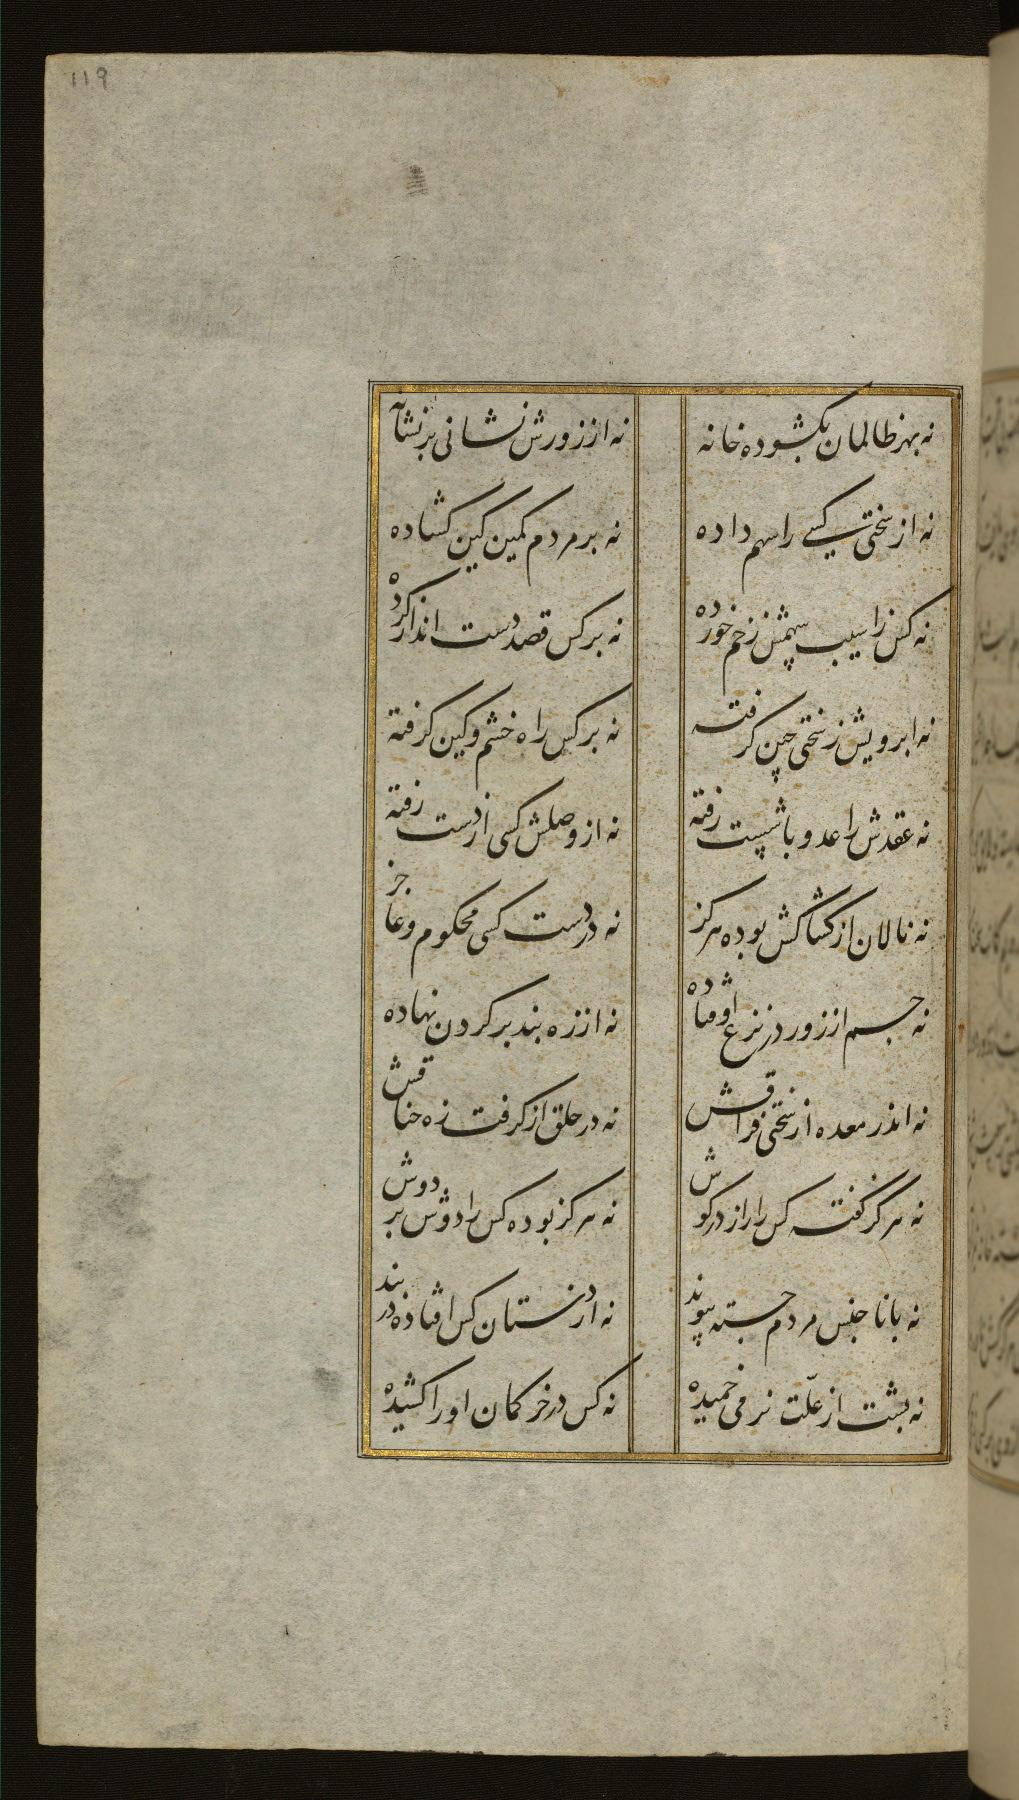 119
نه بهر ظالمان بگشوده خانه
نه از زورش نشانی بر نشانه
نه از سختی کسی را سهم داده
نه بر مردم کمین کین گشاده
نه کس ز اسیب سهمش زخم خورده
نه بر کس قصد دست انداز کرده
نه ابرویش ز سختی چین گرفته
نه بر کس راه خشم و کین گرفته
نه عقدش را عدو با شست رفته
نه از وصلش کسی از دست رفته
نه نالان از کشاکش بوده هرگز
نه در دست کسی محکوم و عاجز
نه جسم از زور در نزع اوفتاده
نه از زه بند بر گردن نهاده
نه اندر معده از سختی فراقش
نه در حلق از گرفت زه خناقش
نه هرگز گفته کس را راز در گوش
نه هرگز بوده کس را دوش بر دوش
نه با ناجنس مردم جسته پیوند
نه از دستان کس افتاده در بند
نه پشت از علّت نرمی خمیده
نه کس در خر کمان او را کشیده